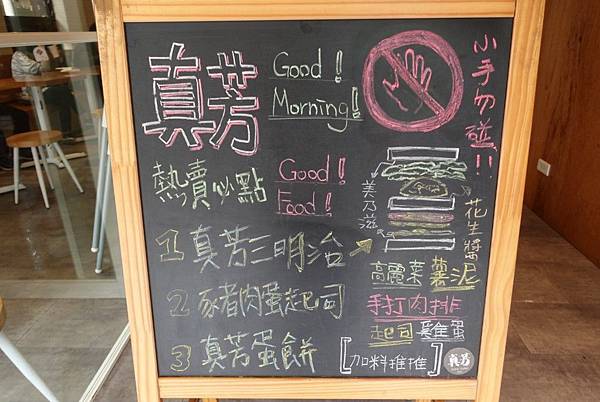 真芳
Good!
Morning!
小手勿碰!!
熱賣必點
Good!
Food!
美乃滋
花生醬
1 真芳三明治
2 豬肉蛋起司
3 真芳蛋餅
高麗菜 薯泥
手打肉排
起司 雞蛋
[加料推推]
真芳